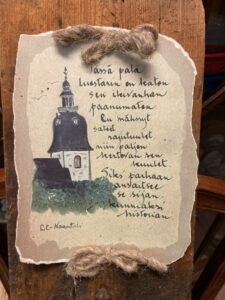 Tässä pala
luostarin on katon
sen ikivanhan
paanumaton
On nähnyt
sateet
rajutuulet
niin paljon
kertovan sen
kuulet
Siks parhaan
ansaitsee
se sijan
kunniaksi
historian
Naantali